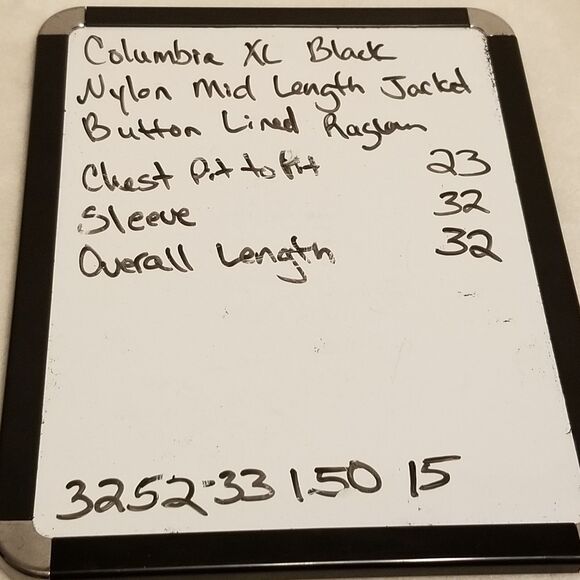 Columbia XL Black
Nylon Mid Length Jacket
Button Lined Raglan
Chest Pit to Pit 23
Sleeve 32
Overall Length 32
3252-33 1.50 15